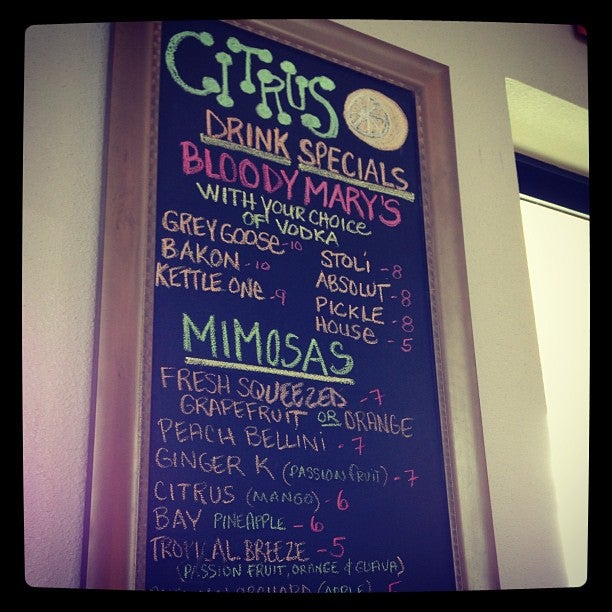 CITRUS
DRINK SPECIALS
BLOODY MARY'S
WITH YOUR CHOICE
OF VODKA
GREY GOOSE - 10
BAKON - 10
KETTLE ONE - 9
STOLI - 8
ABSOLUT - 8
PICKLE - 8
HOUSE - 5
MIMOSAS
FRESH SQUEEZED - 7
GRAPEFRUIT OR ORANGE
PEACH BELLINI - 7
GINGER K (PASSION FRUIT) - 7
CITRUS (MANGO) - 6
BAY PINEAPPLE - 6
TROPICAL BREEZE - 5
(PASSION FRUIT, ORANGE & GUAVA)
ORCHARD (APPLE) 5